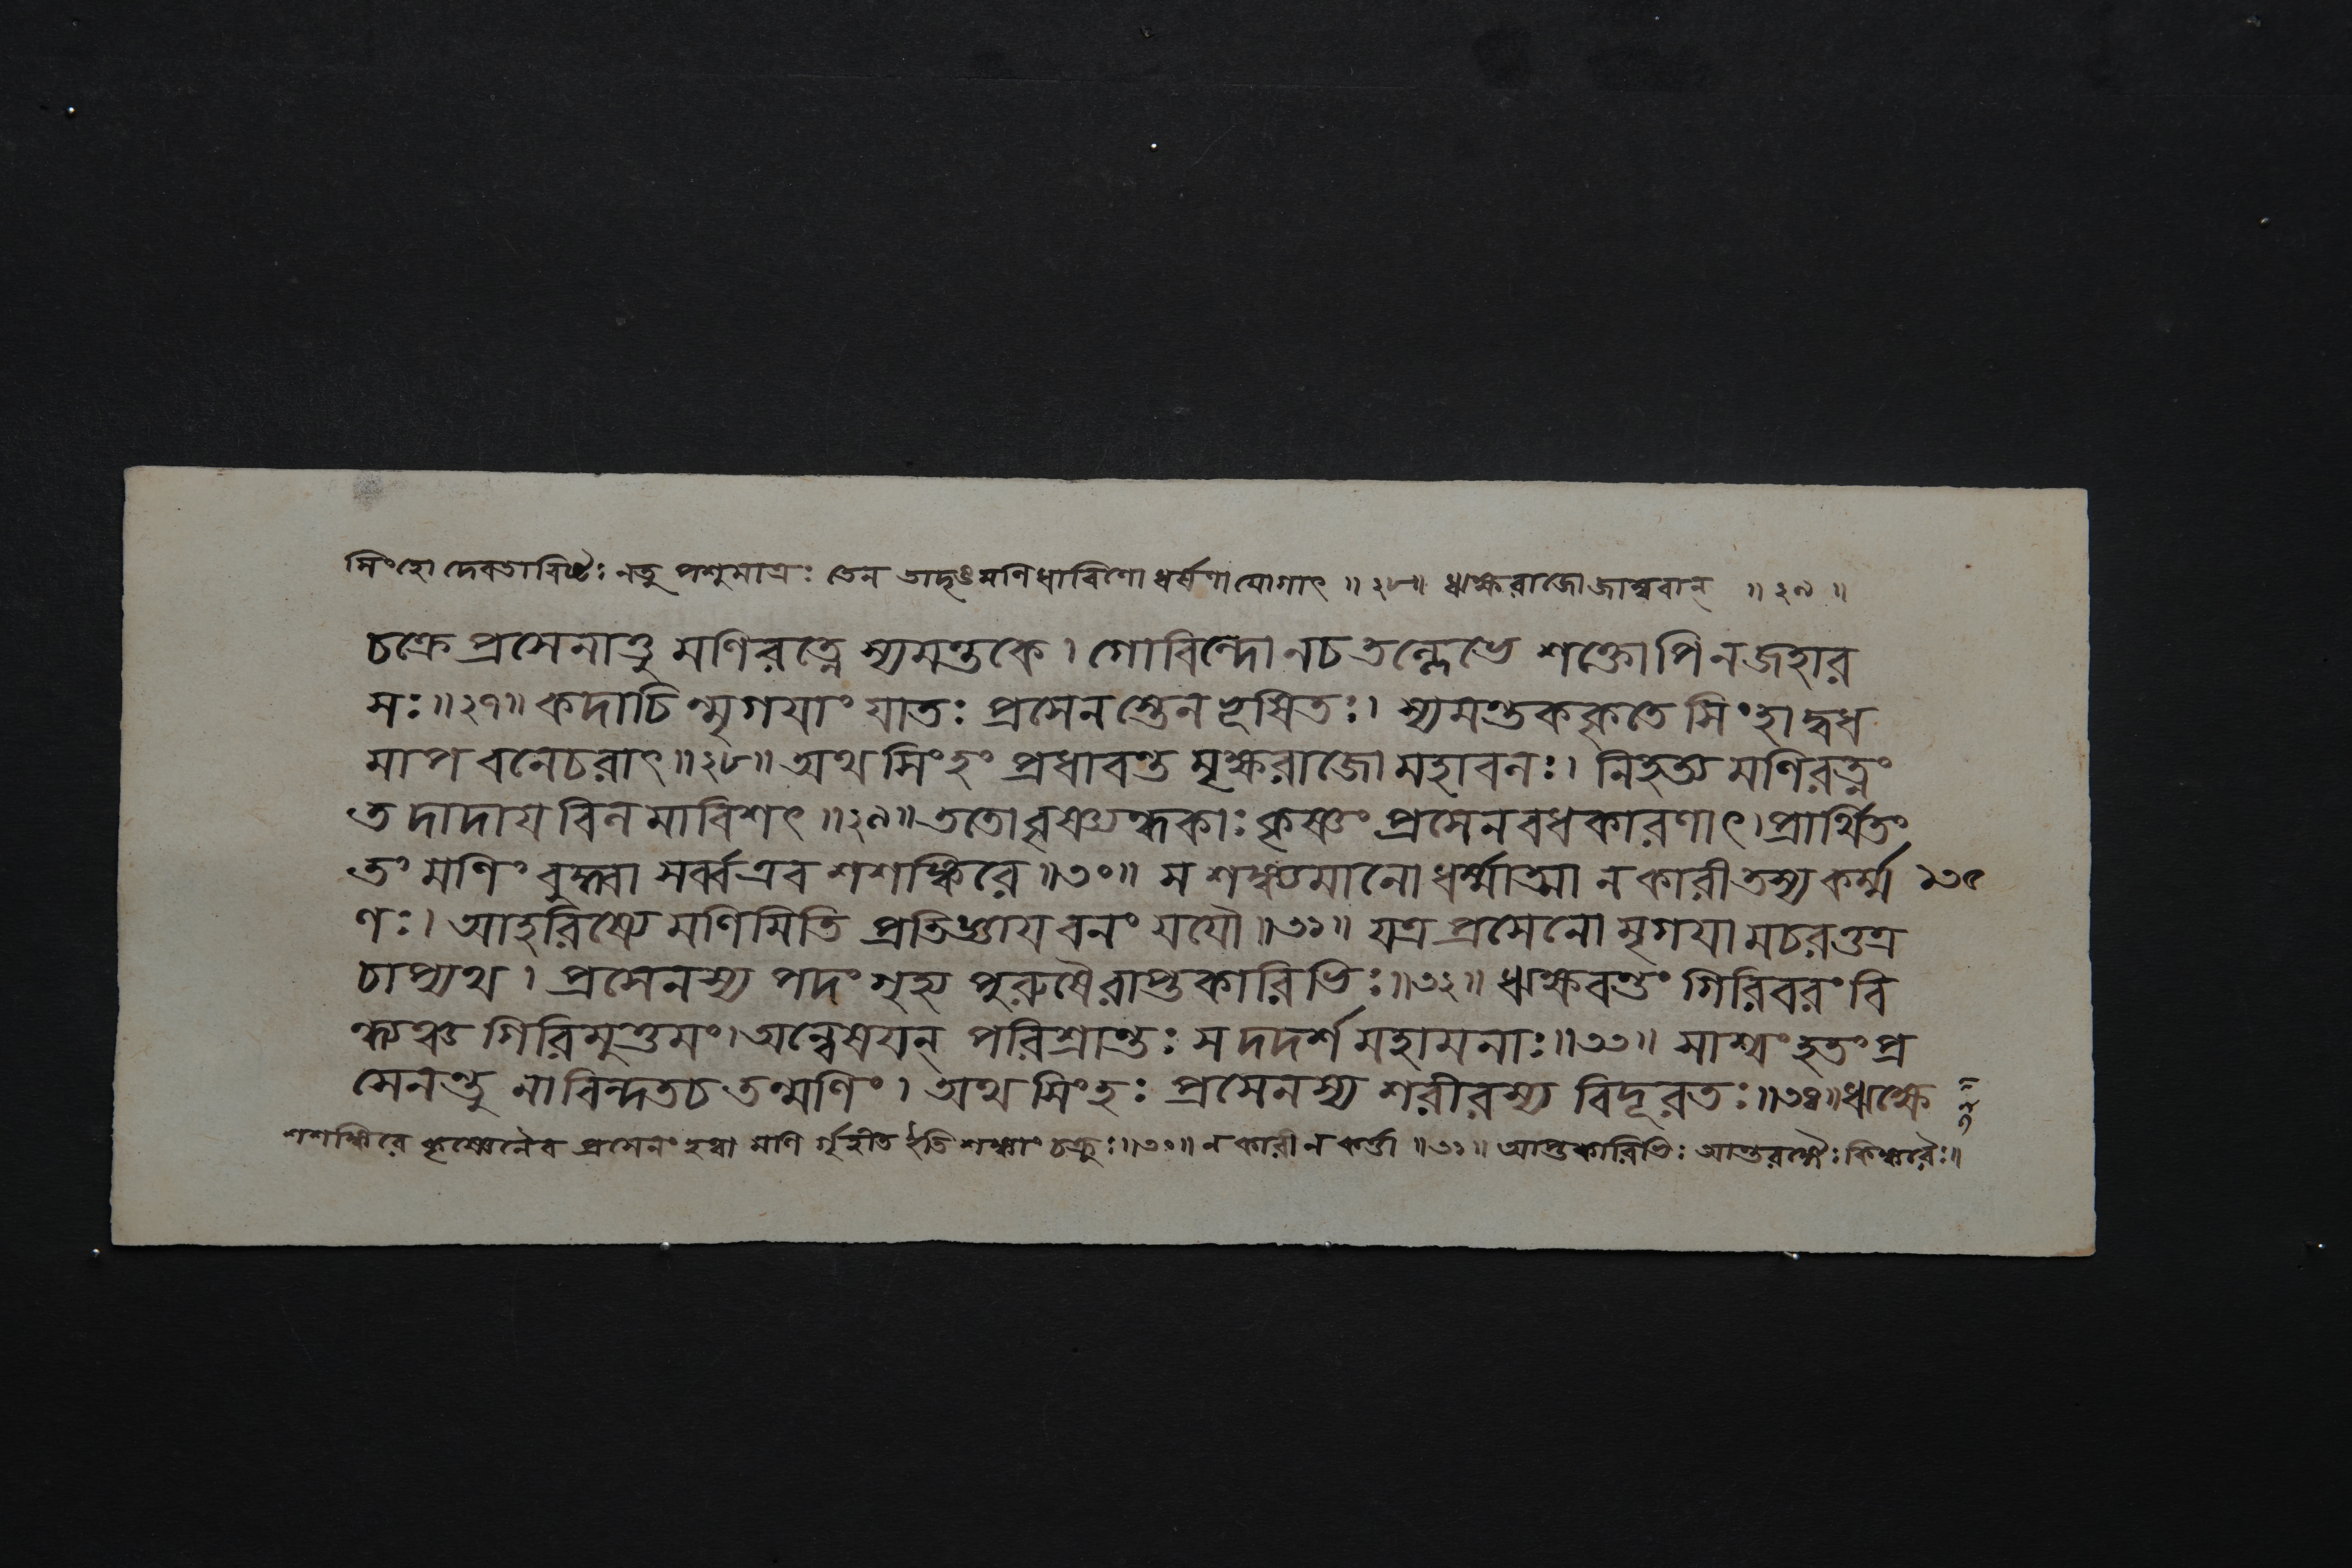 সিংহো দেবতাবিষ্টঃ নতু পশুমাত্রঃ তেন তাদৃঙ্মণিধারিণো ধর্ষণাযোগাৎ ॥ ২৮॥ ঋক্ষরাজো জাম্ববান্ ॥ ২৯ ॥
চক্রে প্রসেনাত্তু মণিরত্নে স্যমন্তকে। গোবিন্দো নচ তল্লেভে শক্তোপি নজহার
সঃ॥২৭॥ কদাচিন্মৃগযাং যাতঃ প্রসেনস্তেন ভূষিতঃ। স্যমন্তককৃতে সিংহাদ্বধ
মাপ বনেচরাৎ॥২৮॥ অথ সিংহং প্রধাবন্ত মৃক্ষরাজো মহাবলঃ। নিহত্য মণিরত্নং
তদাদায বিলমাবিশৎ॥২৯॥ ততো বৃষ্ণ্যন্ধকাঃ কৃষ্ণং প্রসেনবধকারণাৎ। প্রার্থিতং
তং মণিং বুদ্ধ্বা সর্ব্বএব শশঙ্কিরে॥৩০॥ স শঙ্ক্যমানো ধর্ম্মাত্মা নকারী তস্য কর্ম্ম ১৩৫
ণঃ। আহরিষ্যে মণিমিতি প্রতিজ্ঞায বনং যযৌ॥৩১॥ যত্র প্রসেনো মৃগযামচরত্তত্র
চাপ্যথ। প্রসেনস্য পদং গৃহ্য পুরুষৈরাপ্তকারিভিঃ॥৩২॥ ঋক্ষবন্তং গিরিবরং বি
ন্ধ্যঞ্চ গিরিমুত্তমং। অন্বেষযন্ পরিশ্রান্তঃ স দদর্শ মহামনাঃ॥৩৩॥ সাশ্বং হতং প্র
সেনন্তু নাবিন্দতচ তন্মণিং। অথ সিংহঃ প্রসেনস্য শরীরস্য বিদূরতঃ॥৩৪॥ঋক্ষে
শশঙ্কিরে কৃষ্ণেনৈব প্রসেনং হত্বা মণি র্গৃহীত ইতি শঙ্কাং চক্রুঃ॥৩০॥ ন কারী ন কর্ত্তা ॥৩১॥ আপ্তকারিভিঃ আপ্তরক্ষৈঃ কিঙ্করৈঃ॥